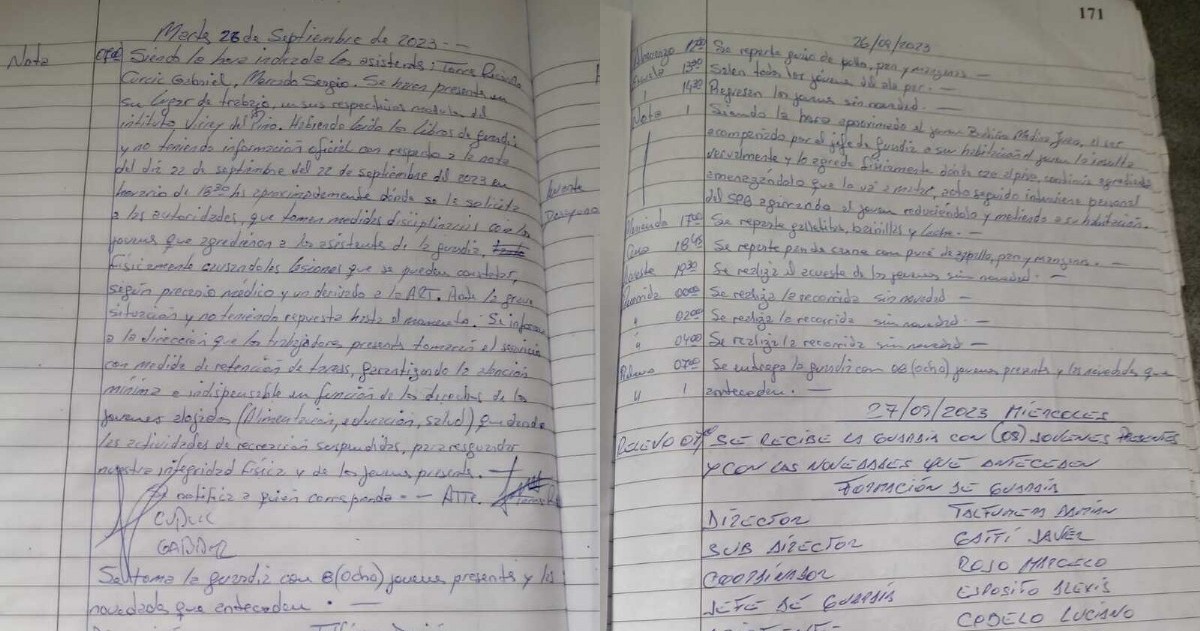 Martes 26 de Septiembre de 2023. --
Nota 0700 Siendo la hora indicada los asistentes: Torres
Curcio Gabriel, Mercado Sergio. Se hacen presente en
su lugar de trabajo, en sus respectivos modulos del
instituto Virrey del Pino. Habiendo leido los libros de guardia
y no teniendo información oficial con respecto a la nota
del día 22 de septiembre del 22 de septiembre del 2023 en
horario de 18:30 hs aproximadamente dónde se le solicita
a las autoridades, que tomen medidas disciplinarias con los
jovenes que agredieron a los asistentes de la guardia,
físicamente causandoles lesiones que se pueden constatar,
según precario médico y un derivado a la ART. Ante la grave
situación y no teniendo repuesta hasta el momento. Se informa
a la dirección que los trabajadores presente tomaran el servicio
con medida de retención de tareas, garantizando la atención
mínima e indispensable en función de los derechos de los
jovenes alojados (Alimentación, educación, salud) quedando
las actividades de recreación suspendidas, para resguardar
nuestra integridad física y de los jovenes presente. --
Se notifica a quien corresponda. -- ATTE.
CURCIO
GABRIEL
Se toma la guardia con 8 (ocho) jovenes presente y las
novedades que anteceden. --
171
26/09/2023
Almuerzo 1200 Se reparte guiso de pollo, pan y manzanas. --
Escuela 1300 Salen todos los jovenes
1 1430 Regresan los jovenes sin novedad. --
Nota 1 Siendo la hora aproximada el joven Medina Juan, al ser
acompañado por el jefe de guardia a su habitación el joven lo insulta
verbalmente y lo agrede físicamente dónde cae al piso, continúa agrediendo
amenazándolo que lo va a matar, acto seguido interviene personal
del SPB agarrando al joven reduciéndolo y metiendo a su habitación.
Merienda 1700 Se reparte galletitas, vainillas y leche. --
Cena 1845 Se reparte pan de carne con puré de zapallo, pan y manzana. --
Acueste 1930 Se realiza el acueste de los jovenes sin novedad. --
Recorrida 0000 Se realiza la recorrida sin novedad --
" 0200 Se realiza la recorrida sin novedad. --
" 0400 Se realiza la recorrida sin novedad --
Relevo 0700 Se entrega la guardia con 08 (ocho) jovenes presente y las novedades que
" 1 anteceden. --
27/09/2023 MIÉRCOLES
RELEVO 0700 SE RECIBE LA GUARDIA CON (08) JOVENES PRESENTES
Y CON LAS NOVEDADES QUE ANTECEDEN
FORMACIÓN DE GUARDIA
DIRECTOR DAMIÁN
SUB DIRECTOR GATTI JAVIER
COORDINADOR ROJO MARCELO
JEFE DE GUARDIA ESPOSITO ALEXIS
CODELO LUCIANO